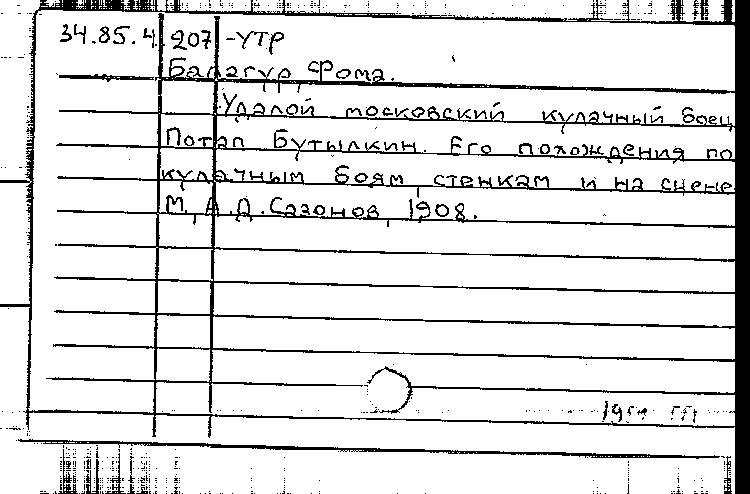 34.85.4 207 -УТР
Балагур, Фома.
Удалой московский кулачный боец
Потап Бутылкин. Его похождения по
кулачным боям, стенкам и на сцене
М, А.Д. Сазонов, 1908.